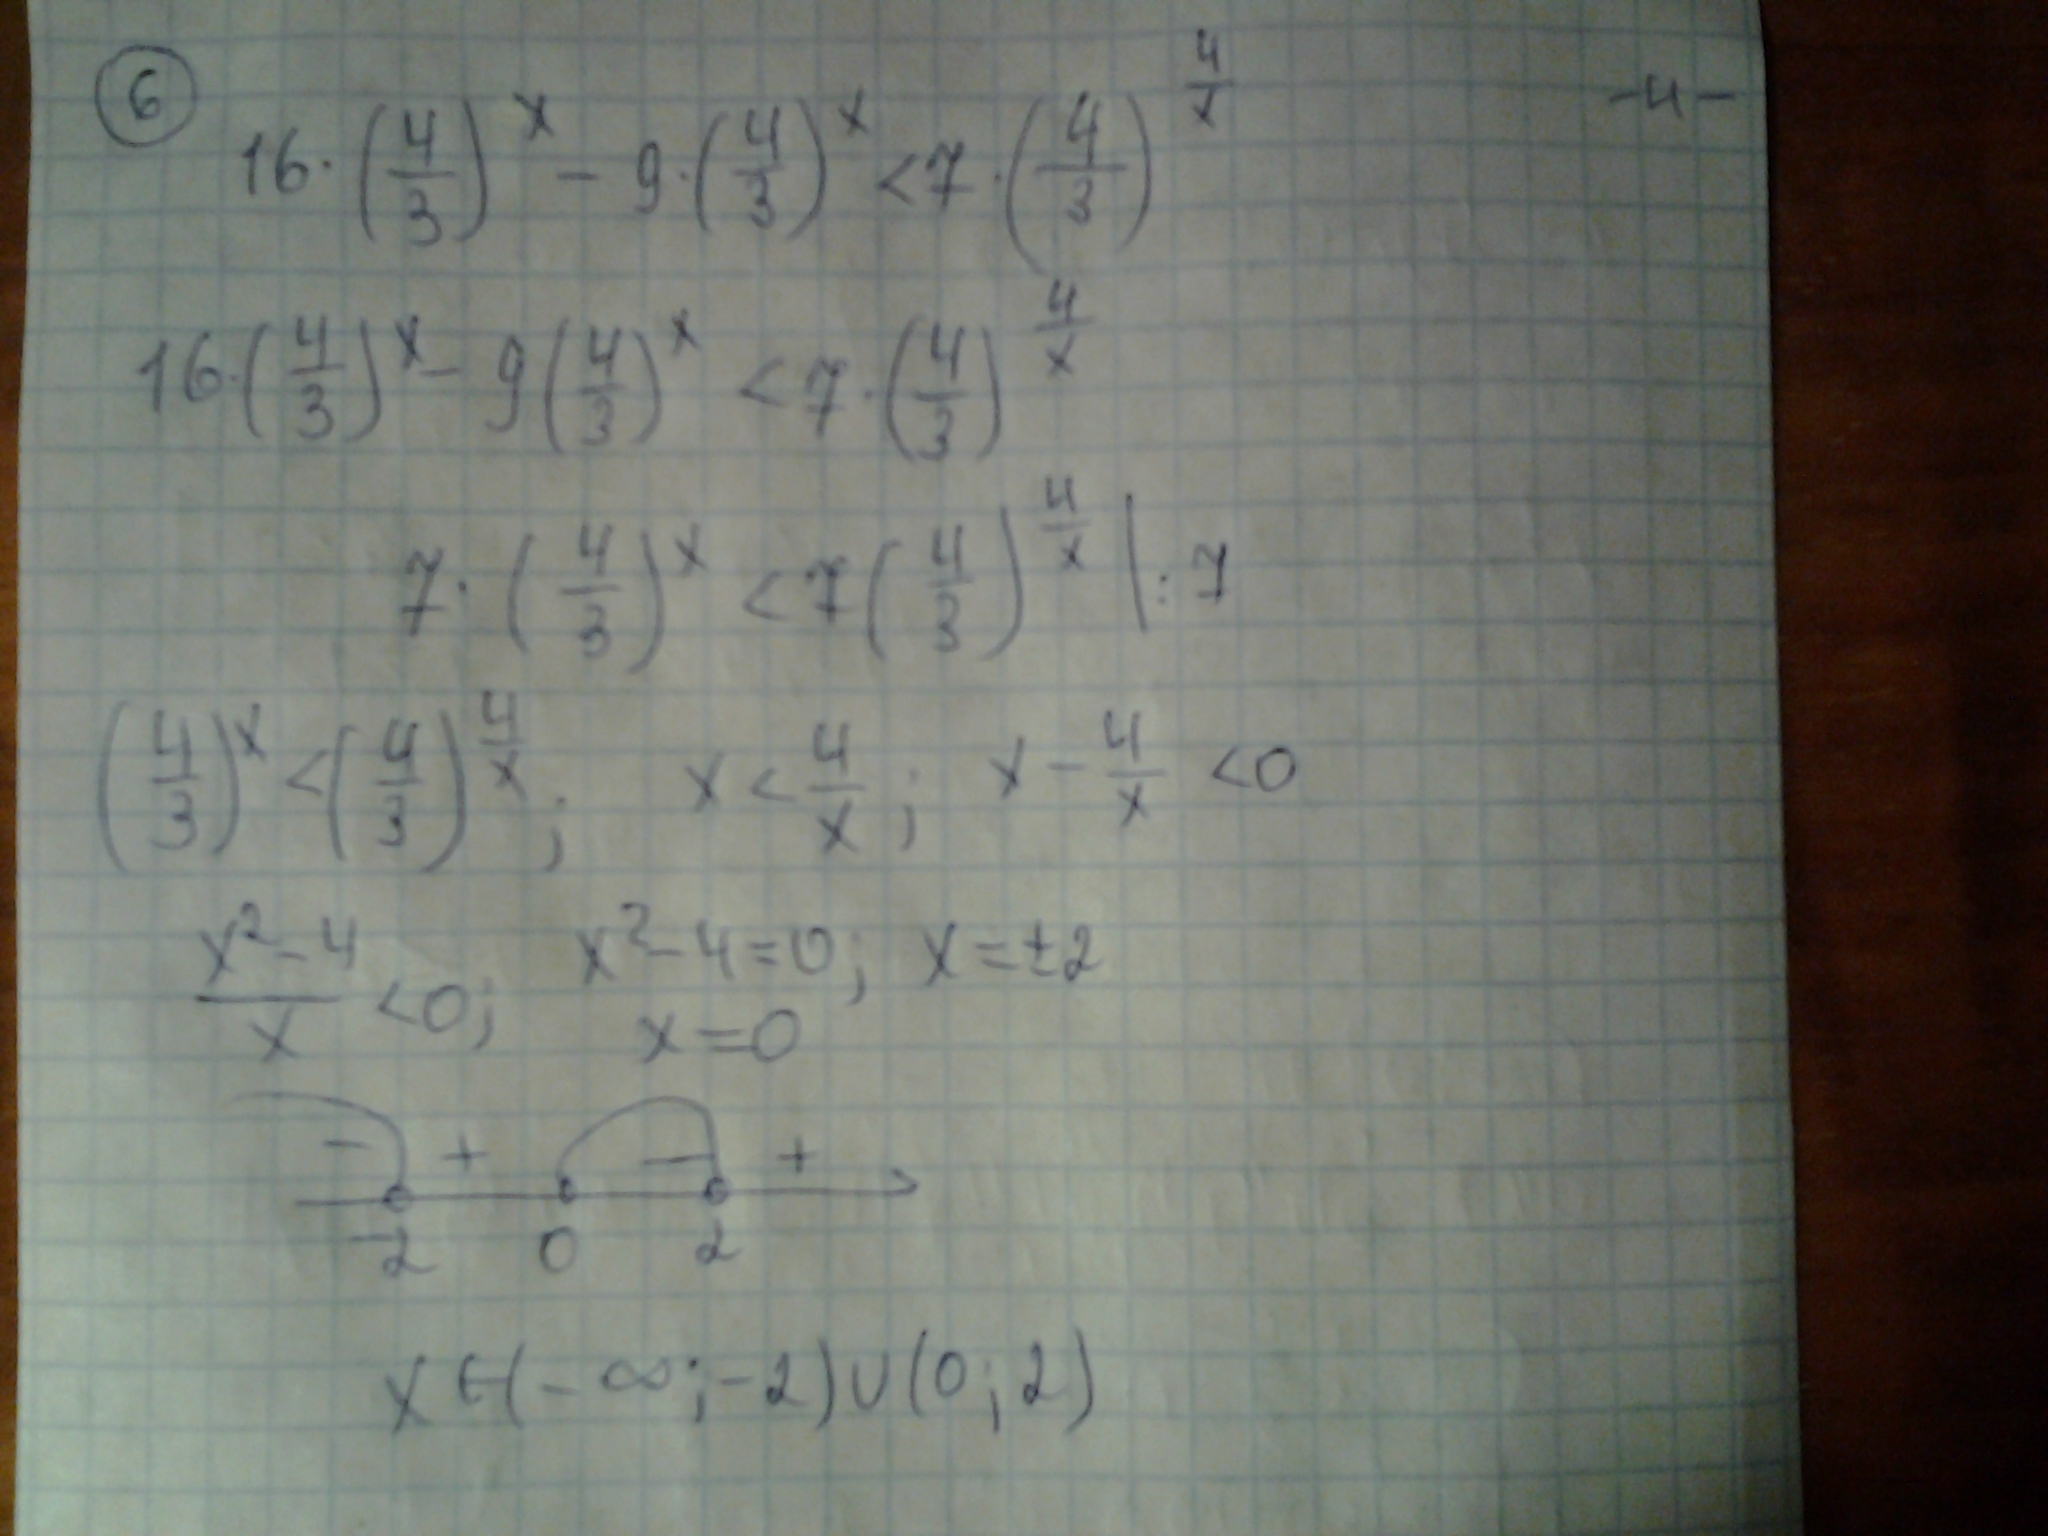 6 -4-
16·(4/3)^x - 9·(4/3)^x < 7·(4/3)^(4/x)
16·(4/3)^x - 9(4/3)^x < 7·(4/3)^(4/x)
7·(4/3)^x < 7(4/3)^(4/x) |:7
(4/3)^x < (4/3)^(4/x); x < 4/x; x - 4/x < 0
(x² - 4)/x < 0; x² - 4 = 0; x = ±2
x = 0
- + - +
-2 0 2
x ∈ (-∞; -2) ∪ (0; 2)